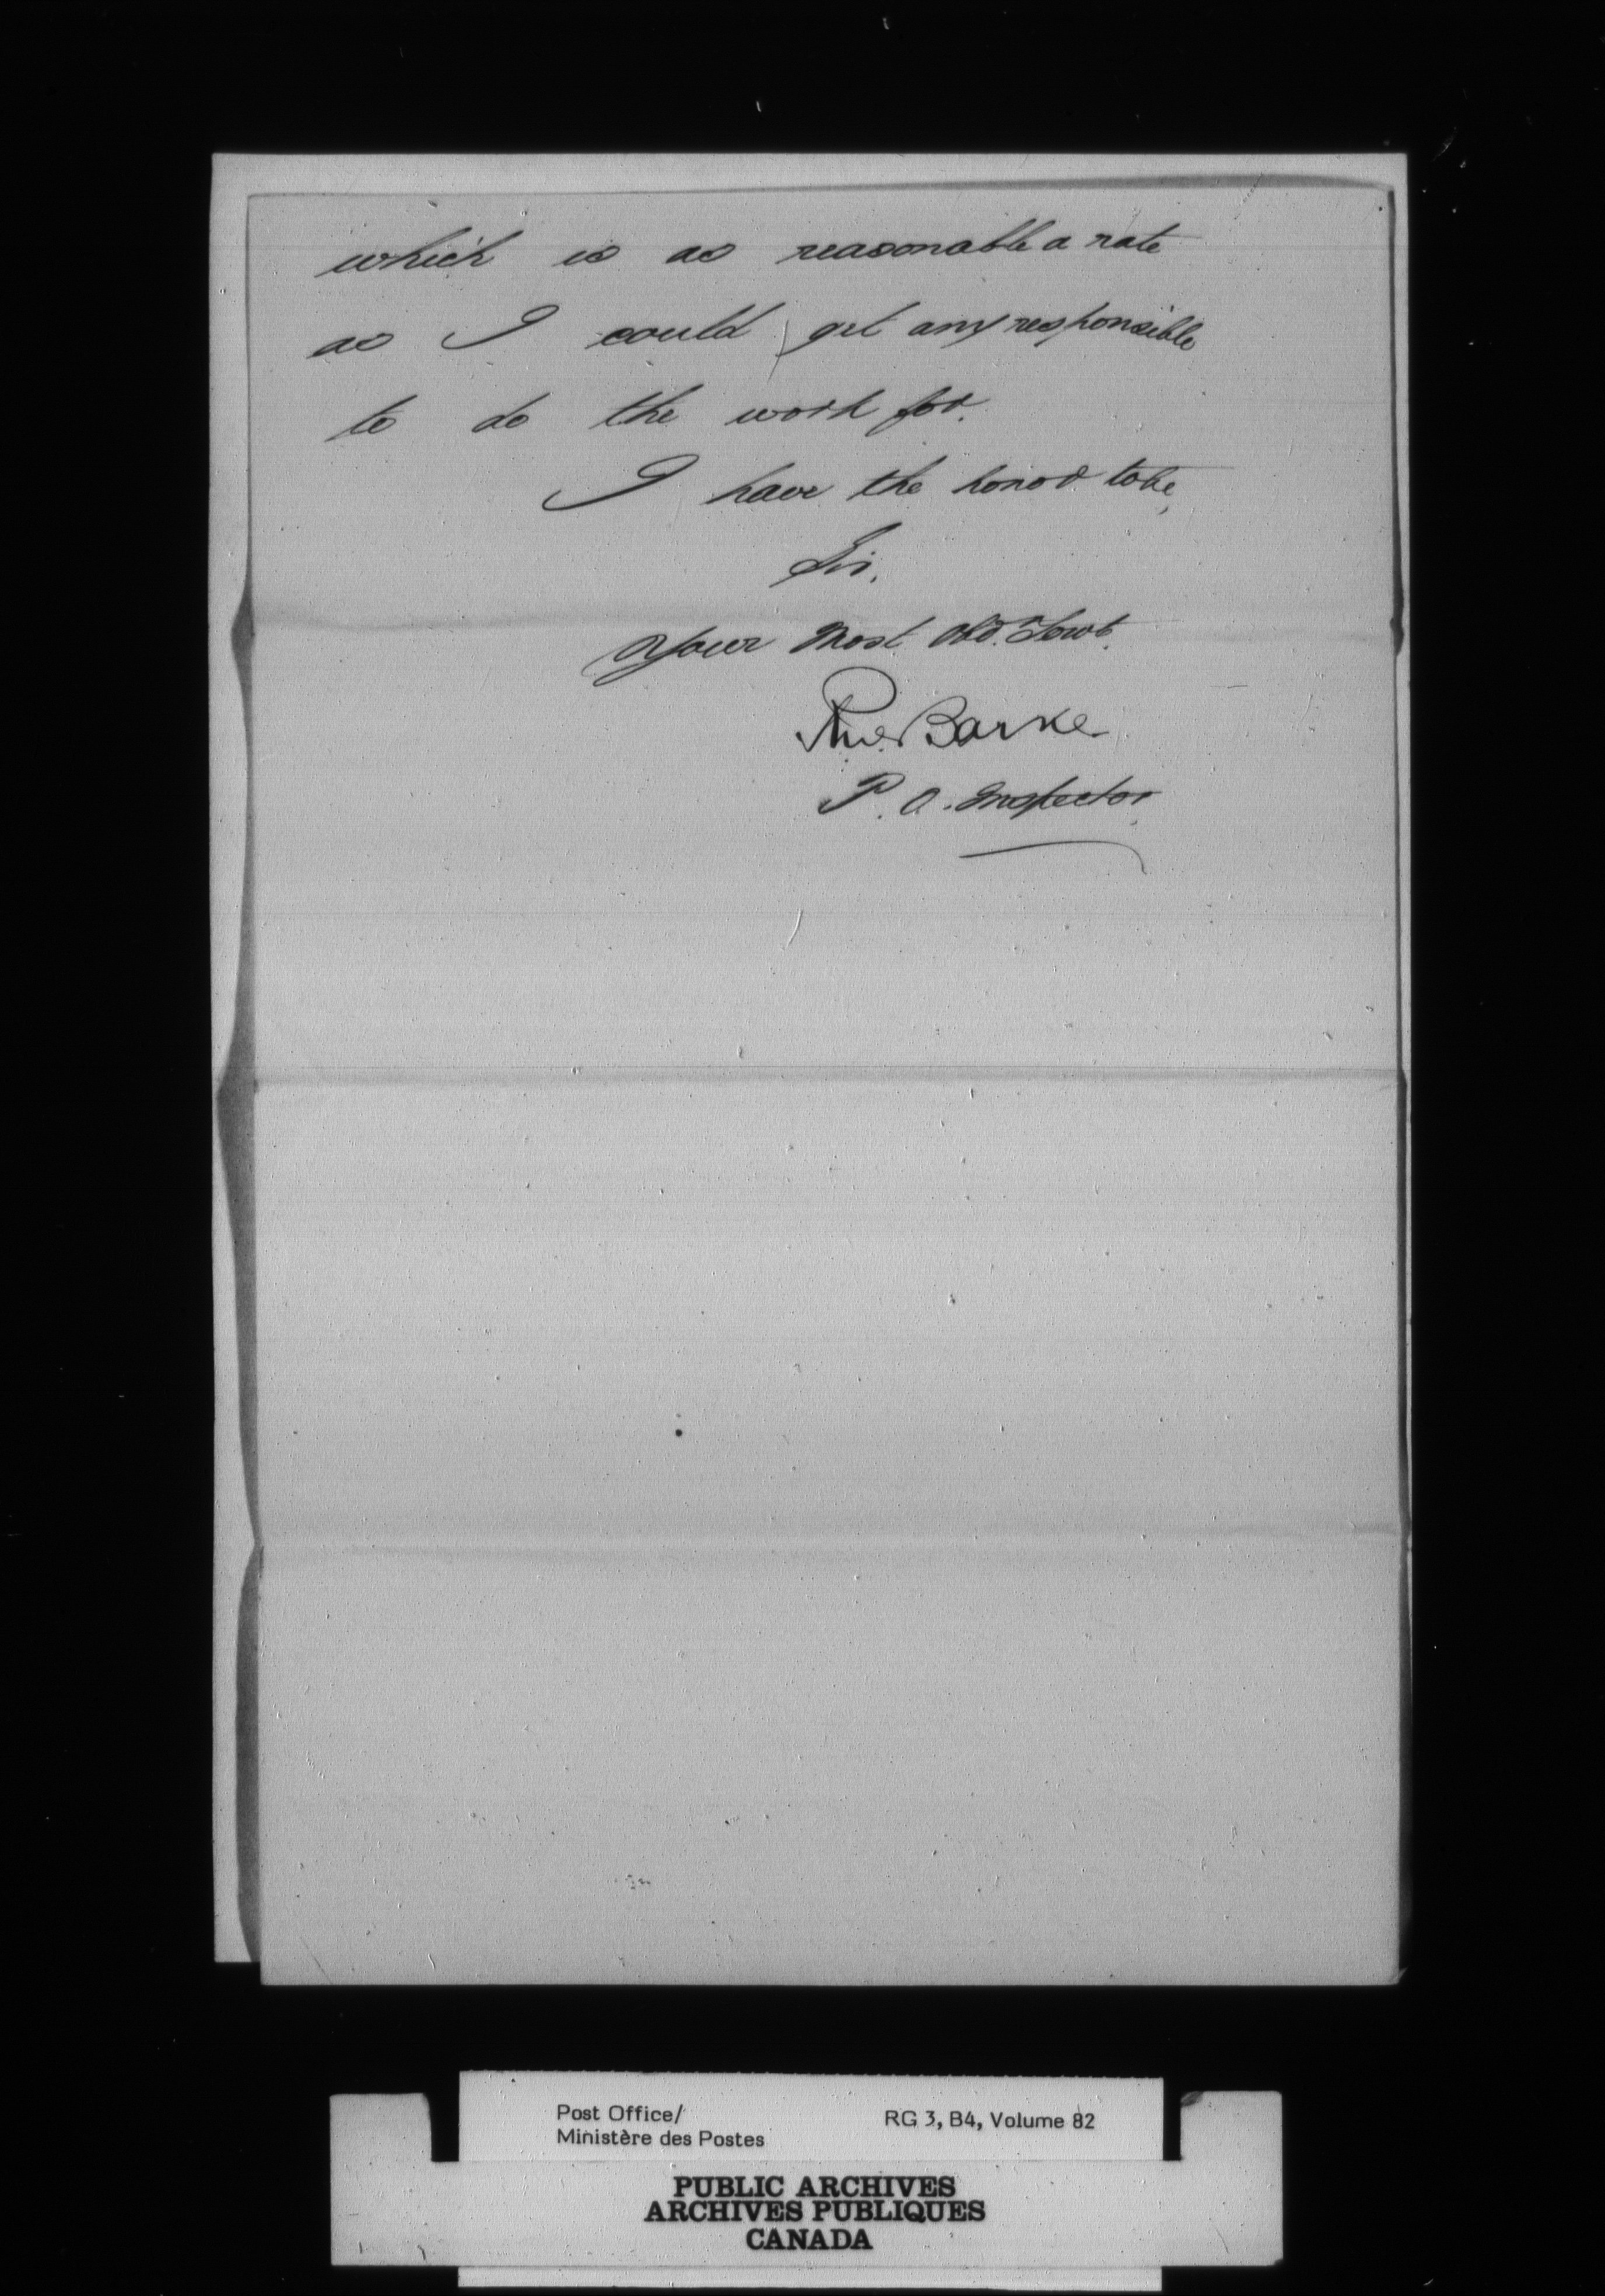 which is as reasonable a rate
as I could get any responsible
to do the work for.
I have the honor to be,
Sir,
Your Most Obd. Servt.
Barker
P. O. Inspector
Post Office/
Ministère des Postes
RG 3, B4, Volume 82
PUBLIC ARCHIVES
ARCHIVES PUBLIQUES
CANADA